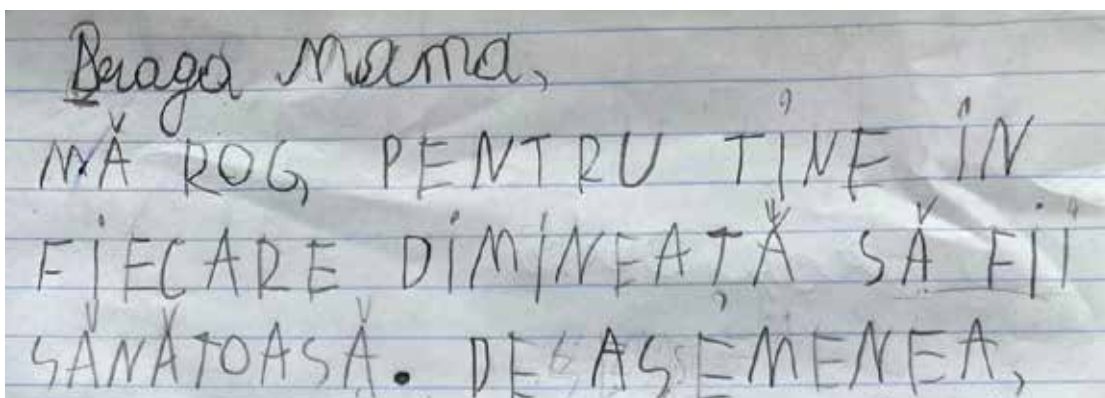 Draga Mama,
MĂ ROG PENTRU TINE ÎN
FIECARE DIMINEAȚĂ SĂ FII
SĂNĂTOASĂ. DE ASEMENEA,